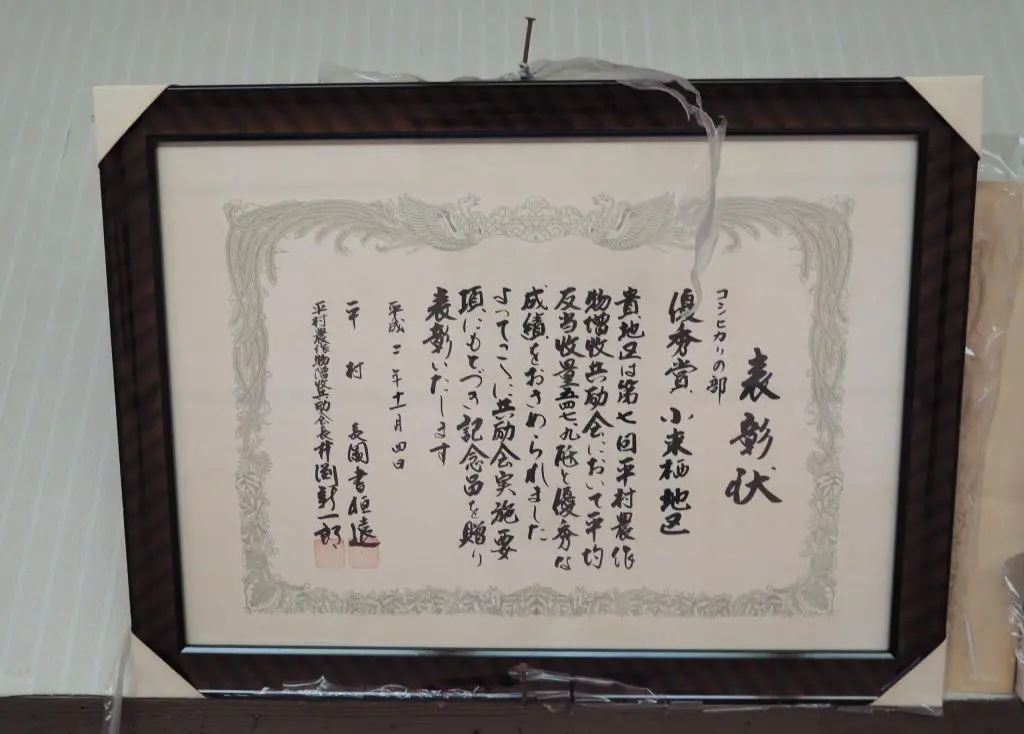 表彰状
コシヒカリの部
優秀賞 小来栖地区
貴地区は第七回平村農作
物増收共励会において平均
反当收量五四七、九瓩と優秀な
成績をおさめられました
よってここに共励会実施要
項にもとづき記念品を贈り
表彰いたします
平成二年十一月四日
平村長 図書恒遠
平村農作物増收共励会長 井渕新一郎